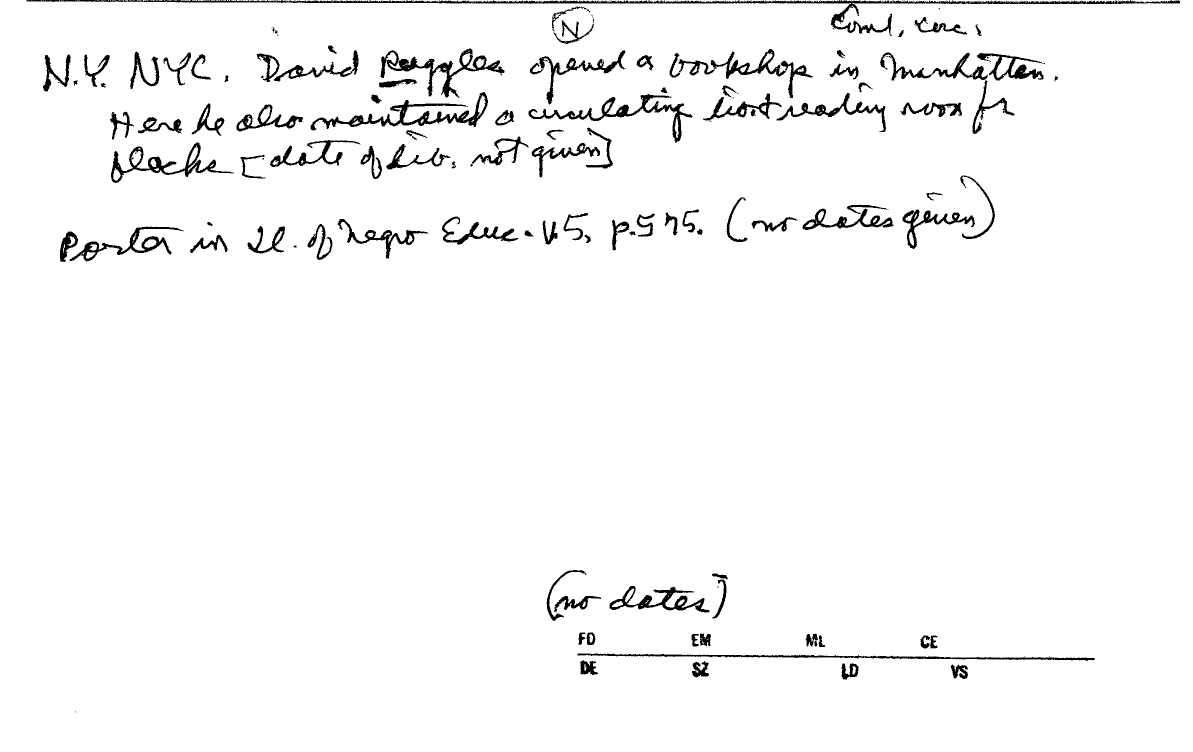 N
Coml. circ.
N.Y. NYC. David Ruggles opened a bookshop in Manhattan.
Here he also maintained a circulating lib. & reading room for
blacks [date of lib. not given]
Porter in Jl. of Negro Educ. V.5, p.575. (no dates given)
(no dates)
FD EM ML CE
DE SZ LD VS